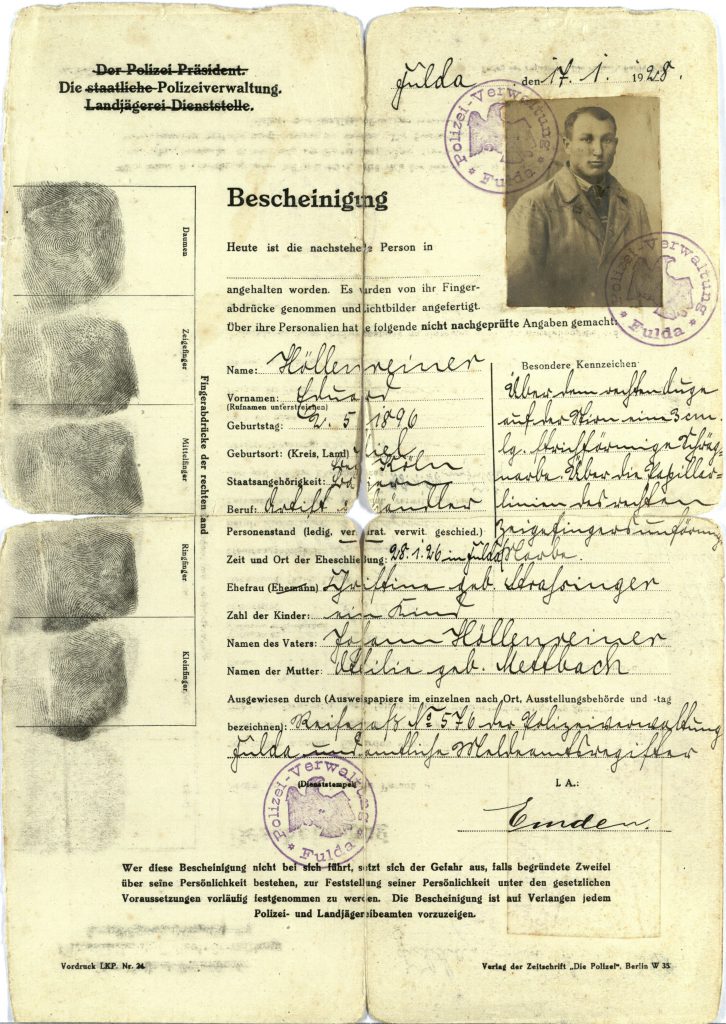 Der Polizei-Präsident.
Die staatliche Polizeiverwaltung.
Landjägerei-Dienststelle.
Fulda, den 17. 1. 1928.
Polizei-Verwaltung
* Fulda *
Polizei-Verwaltung
* Fulda *
Bescheinigung
Heute ist die nachstehende Person in
angehalten worden. Es wurden von ihr Finger-
abdrücke genommen und Lichtbilder angefertigt.
Über ihre Personalien hat sie folgende nicht nachgeprüfte Angaben gemacht:
Fingerabdrücke der rechten Hand
Daumen
Zeigefinger
Mittelfinger
Ringfinger
Kleinfinger
Name: Höllenreiner
Vornamen: Eduard
(Rufnamen unterstreichen)
Geburtstag: 2. 5. 1896
Geburtsort: (Kreis, Land)
Köln
Staatsangehörigkeit: Bayern
Beruf: Artist Händler
Besondere Kennzeichen
Über dem rechten Auge
auf der Stirn eine 3 cm.
lg. strichförmige Schräg-
narbe. Über die Papillar-
linien des rechten
Zeigefingers
Narbe.
Personenstand (ledig, verheirat. verwit. geschied.)
Zeit und Ort der Eheschließung: 28. 1. 26 in Fulda
Ehefrau (Ehemann) Christine geb. Strassinger
Zahl der Kinder: ein Kind
Namen des Vaters: Johann Höllenreiner
Namen der Mutter: Ottilie geb. Mettbach
Ausgewiesen durch (Ausweispapiere im einzelnen nach Ort, Ausstellungsbehörde und -tag
bezeichnen): Reisepaß No 576 der Polizeiverwaltung
Fulda und amtliche Meldeamtsregister
(Dienststempel)
Polizei-Verwaltung
* Fulda *
I. A.:
Emden.
Wer diese Bescheinigung nicht bei sich führt, setzt sich der Gefahr aus, falls begründete Zweifel
über seine Persönlichkeit bestehen, zur Feststellung seiner Persönlichkeit unter den gesetzlichen
Voraussetzungen vorläufig festgenommen zu werden. Die Bescheinigung ist auf Verlangen jedem
Polizei- und Landjägereibeamten vorzuzeigen.
Vordruck LKP. Nr. 24.
Verlag der Zeitschrift „Die Polizei“, Berlin W 35